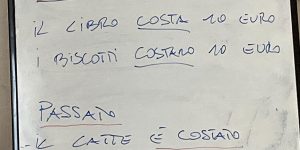 IL LIBRO COSTA 10 EURO
I BISCOTTI COSTANO 10 EURO
PASSATO
- IL LATTE È COSTATO